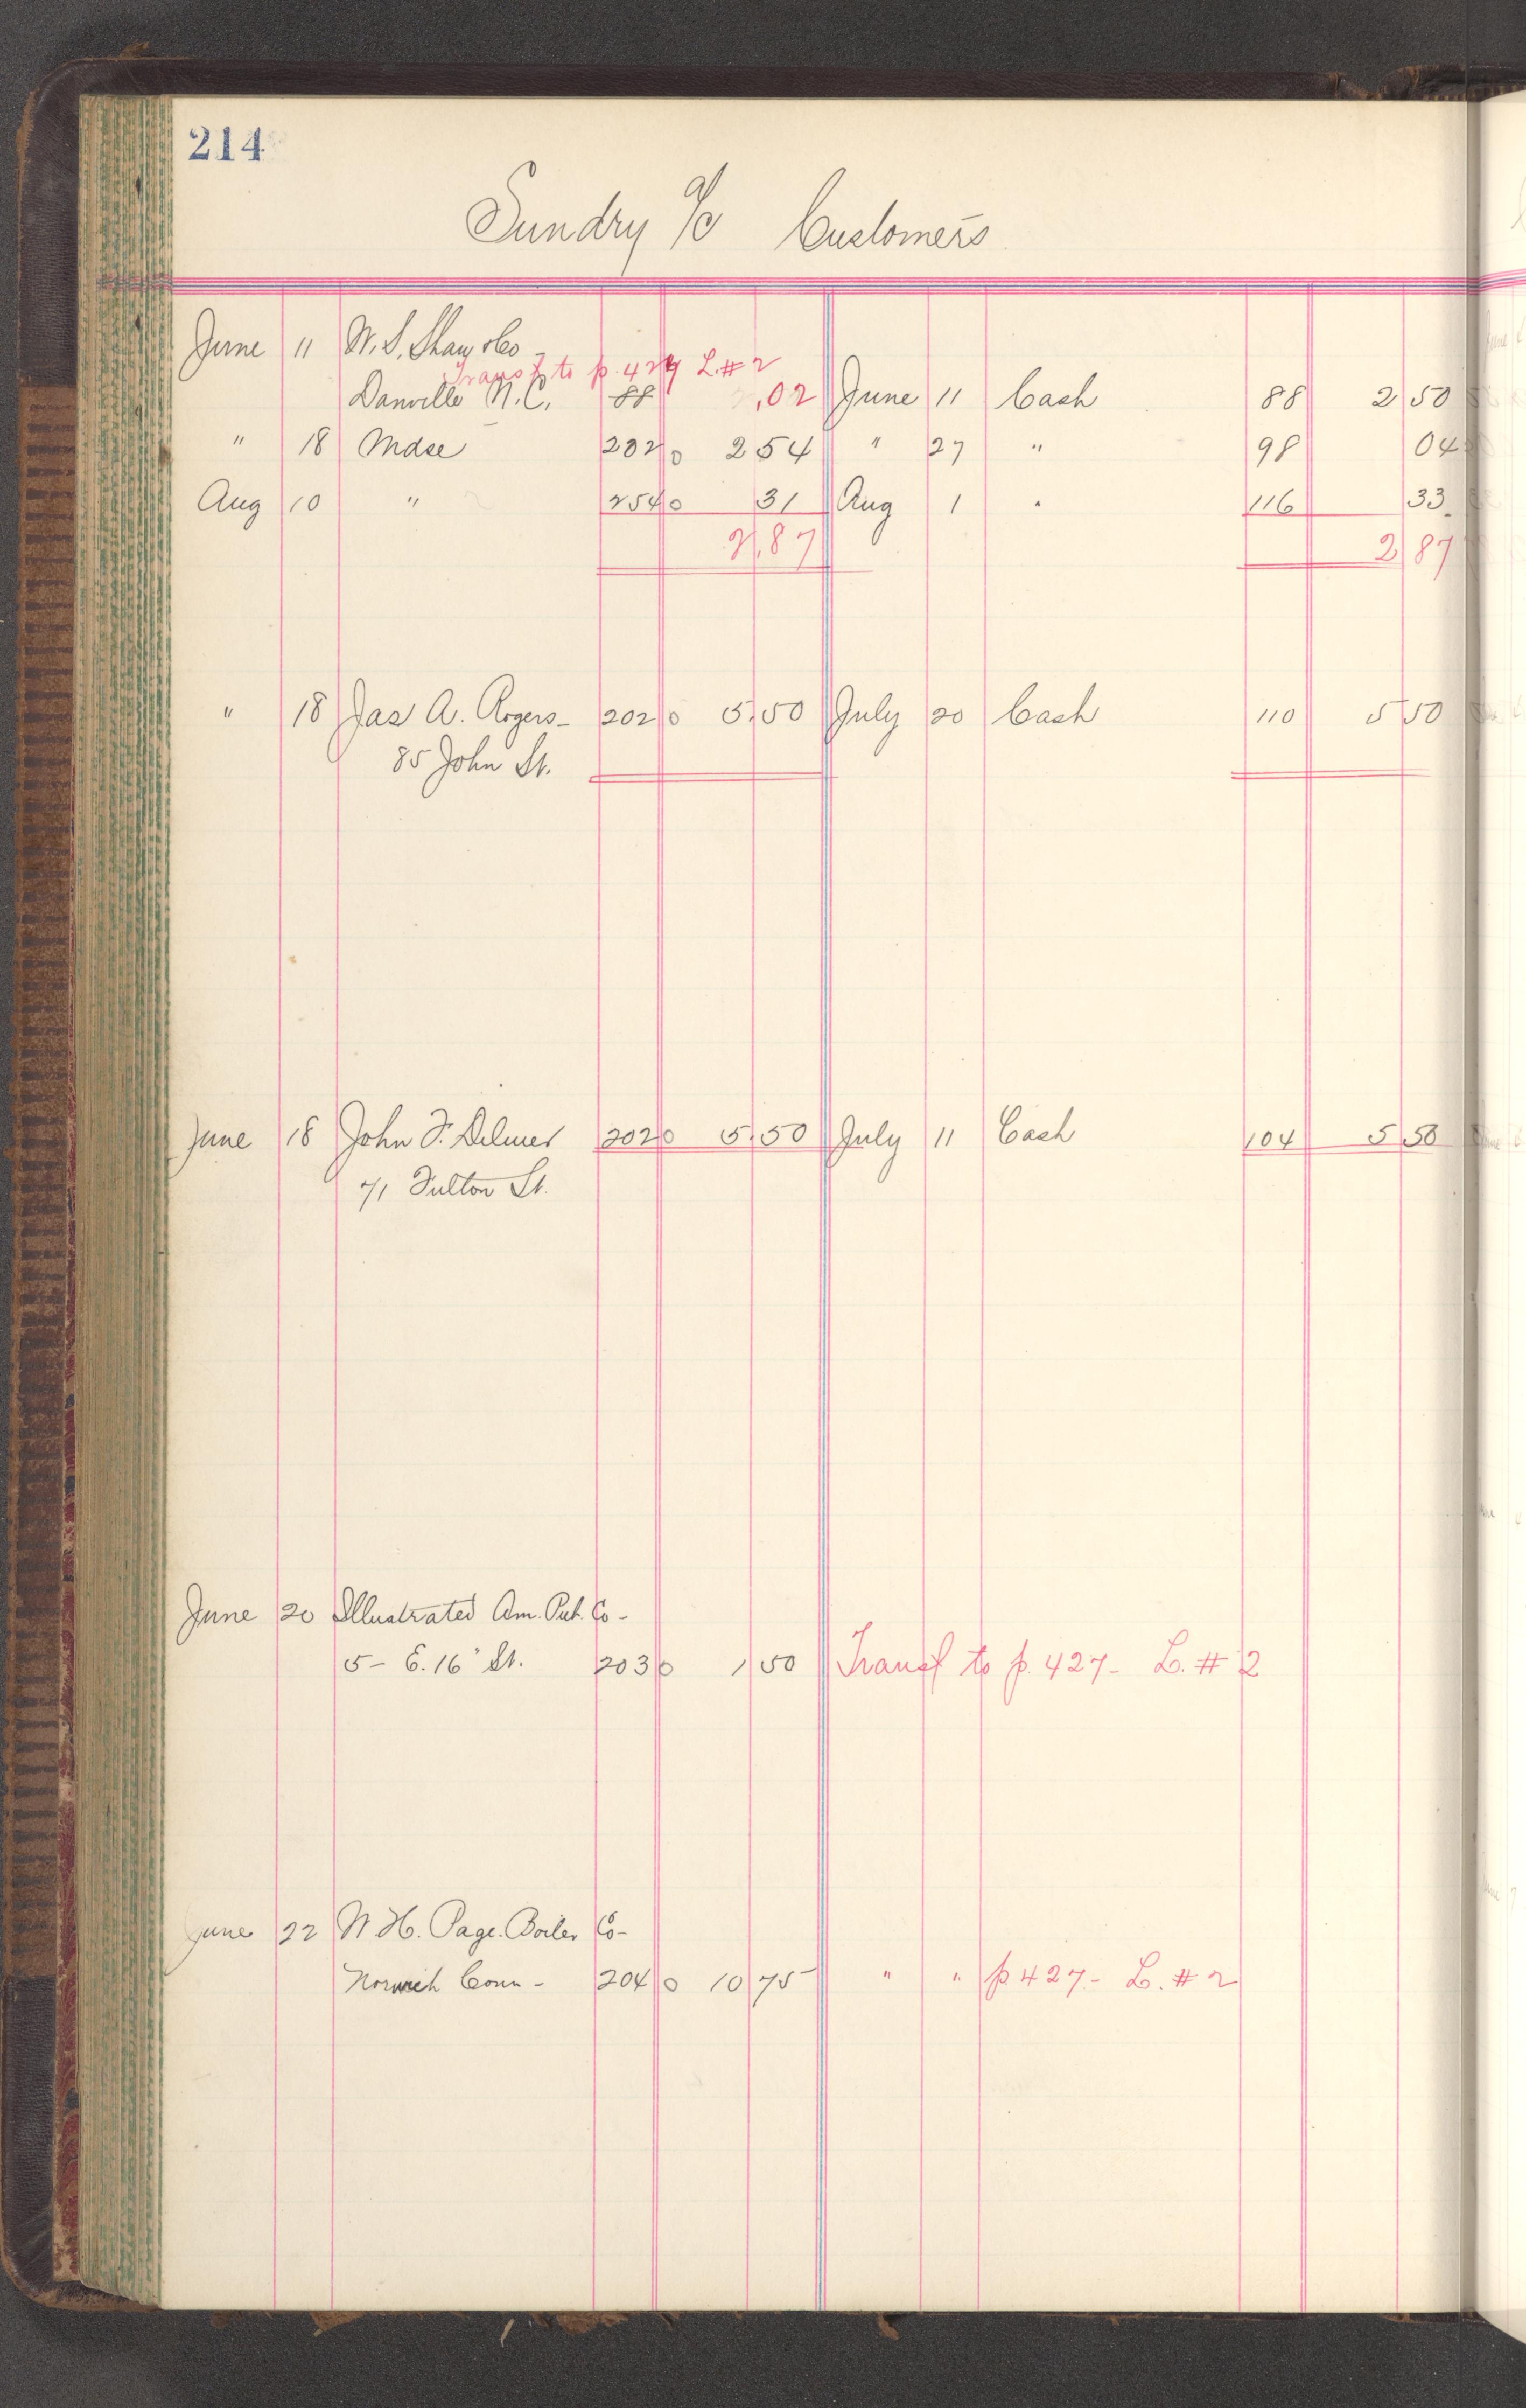 214
Sundry a/c Customers
June 11 W. S. Shaw & Co -
Transf to p. 427 L. # 2
Danville N. C. 88 .02 June 11 Cash 88 2 50
" 18 Mdse 202 0 2 54 " 27 " 98 04
Aug 10 " 254 0 31 Aug 1 " 116 33
2.87 2 87
" 18 Jas A. Rogers - 202 0 5.50 July 20 Cash 110 5 50
85 John St.
June 18 John F. Delmer 202 0 5.50 July 11 Cash 104 5 50
71 Fulton St.
June 20 Illustrated Am. Pub. Co -
5 - E. 16" St. 203 0 1 50 Transf to p. 427 - L. # 2
June 22 W. H. Page Boiler Co -
Norwich Conn - 204 0 10 75 " " p 427 - L. # 2